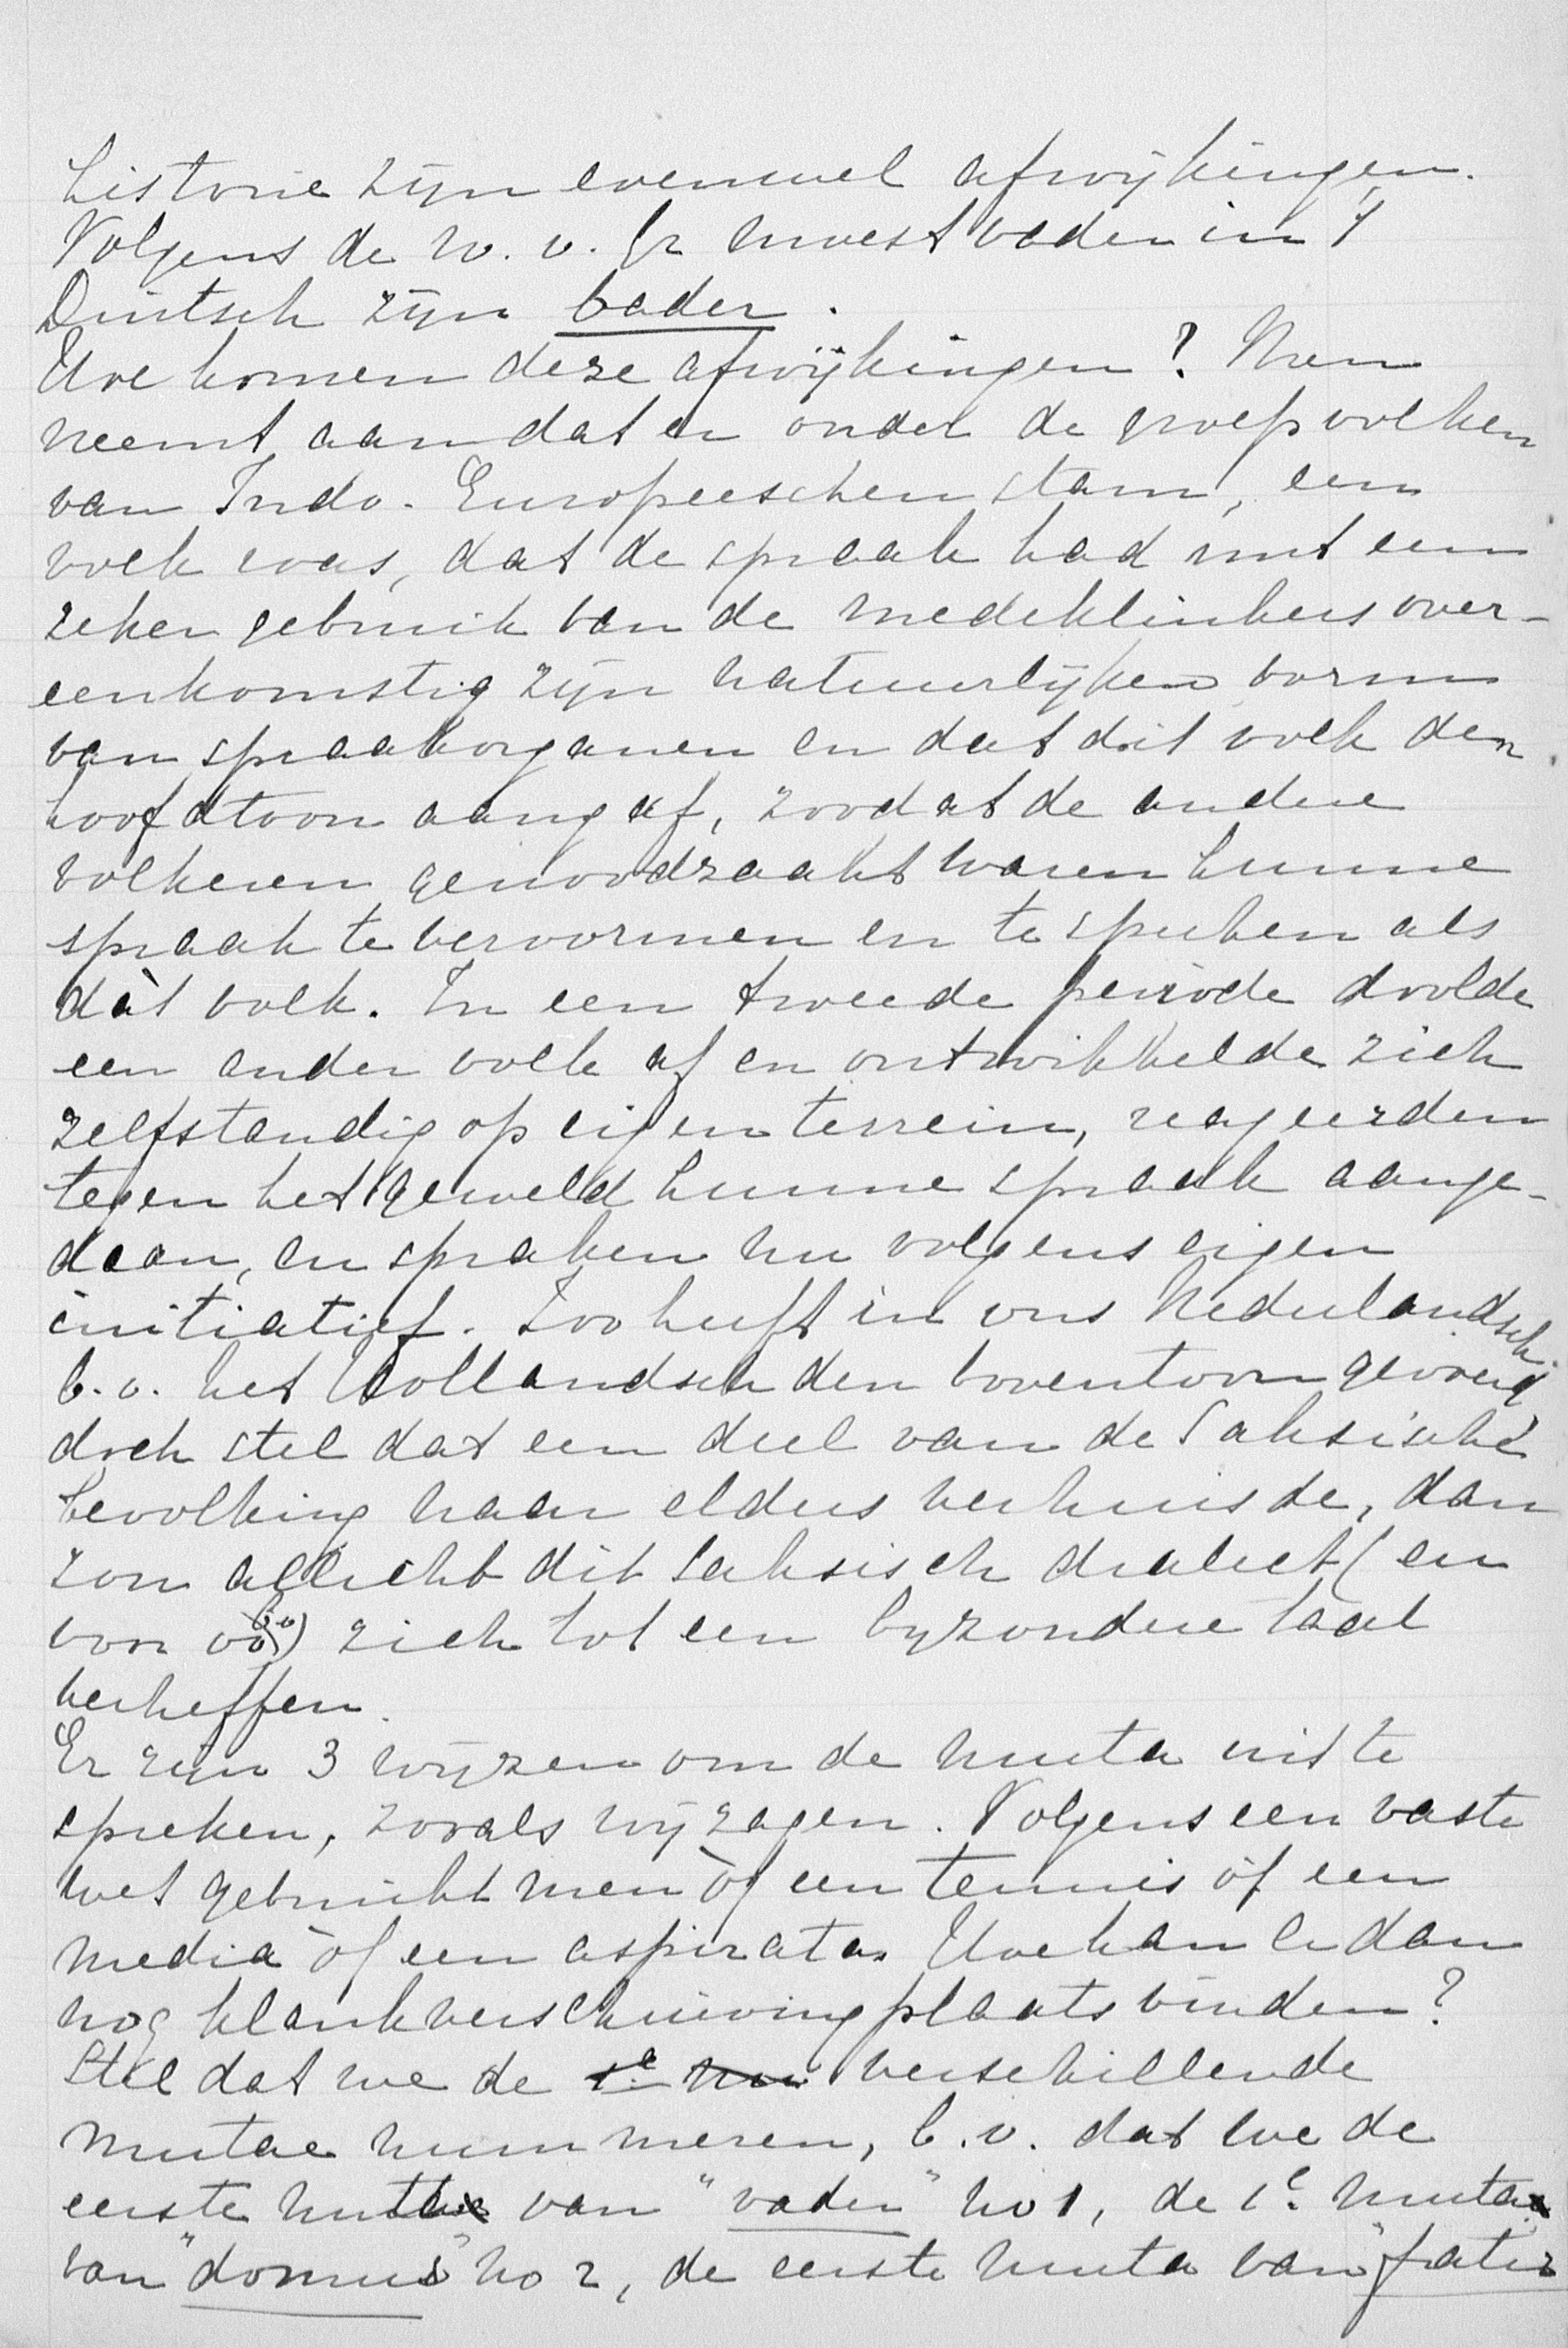 historie zijn evenwel afwijkingen.
Volgens de w. v. Gr moest vader in 't
Duitsch zijn bader.
Hoe komen deze afwijkingen? Men
neemt aan dat er onder de groep volken
van Indo-Europeeschen stam, een
volk was, dat de spraak had met een
zeker gebruik van de medeklinkers over-
eenkomstig zijn natuurlijken vorm
van spraakorganen en dat dit volk den
hoofdtoon aangaf, zoodat de andere
volkeren genoodzaakt waren hunne
spraak te vervormen en te spreken als
dàt volk. In een tweede periode doolde
een ander volk af en ontwikkelde zich
zelfstandig op eigen terrein, reageerden
tegen het geweld hunne spraak aange-
daan, en spraken nu volgens eigen
initiatief. Zoo heeft in ons Nederlandsch
b.v. het Hollandsch den boventoon gevoerd
doch stel dat een deel van de Saksische
bevolking naar elders verhuisde, dan
zou allicht dit Saksisch dialect (en
zich tot een byzondere taal
verheffen.
Er zijn 3 wijzen om de muta uit te
spreken, zooals wij zagen. Volgens een vaste
wet gebruikt men òf een tenuis òf een
media òf een aspirata. Hoe kan er dan
nog klankverschuiving plaats vinden?
Stel dat we de verschillende
mutae nummeren, b.v. dat we de
eerste muta van "vader" no 1, de 1e muta
van "domus" no 2, de eerste muta van "frater